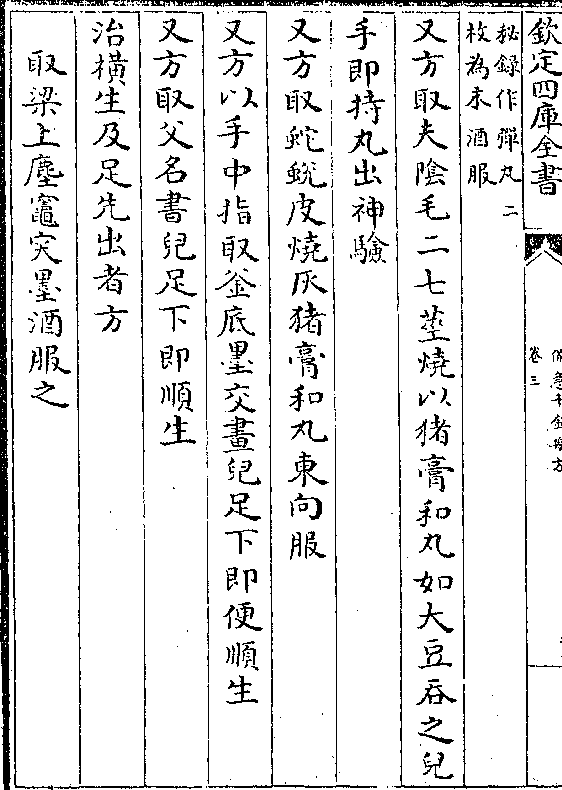 欽定四庫全書
備急千金要方
卷三
秘録作彈丸二
枚為末酒服
又方取夫陰毛二七莖燒以猪膏和丸如大豆吞之兒
手即持丸出神驗
又方取蛇蛻皮燒灰猪膏和丸東向服
又方以手中指取釜底墨交畫兒足下即便順生
又方取父名書兒足下即順生
治橫生及足先出者方
取梁上塵竈突墨酒服之